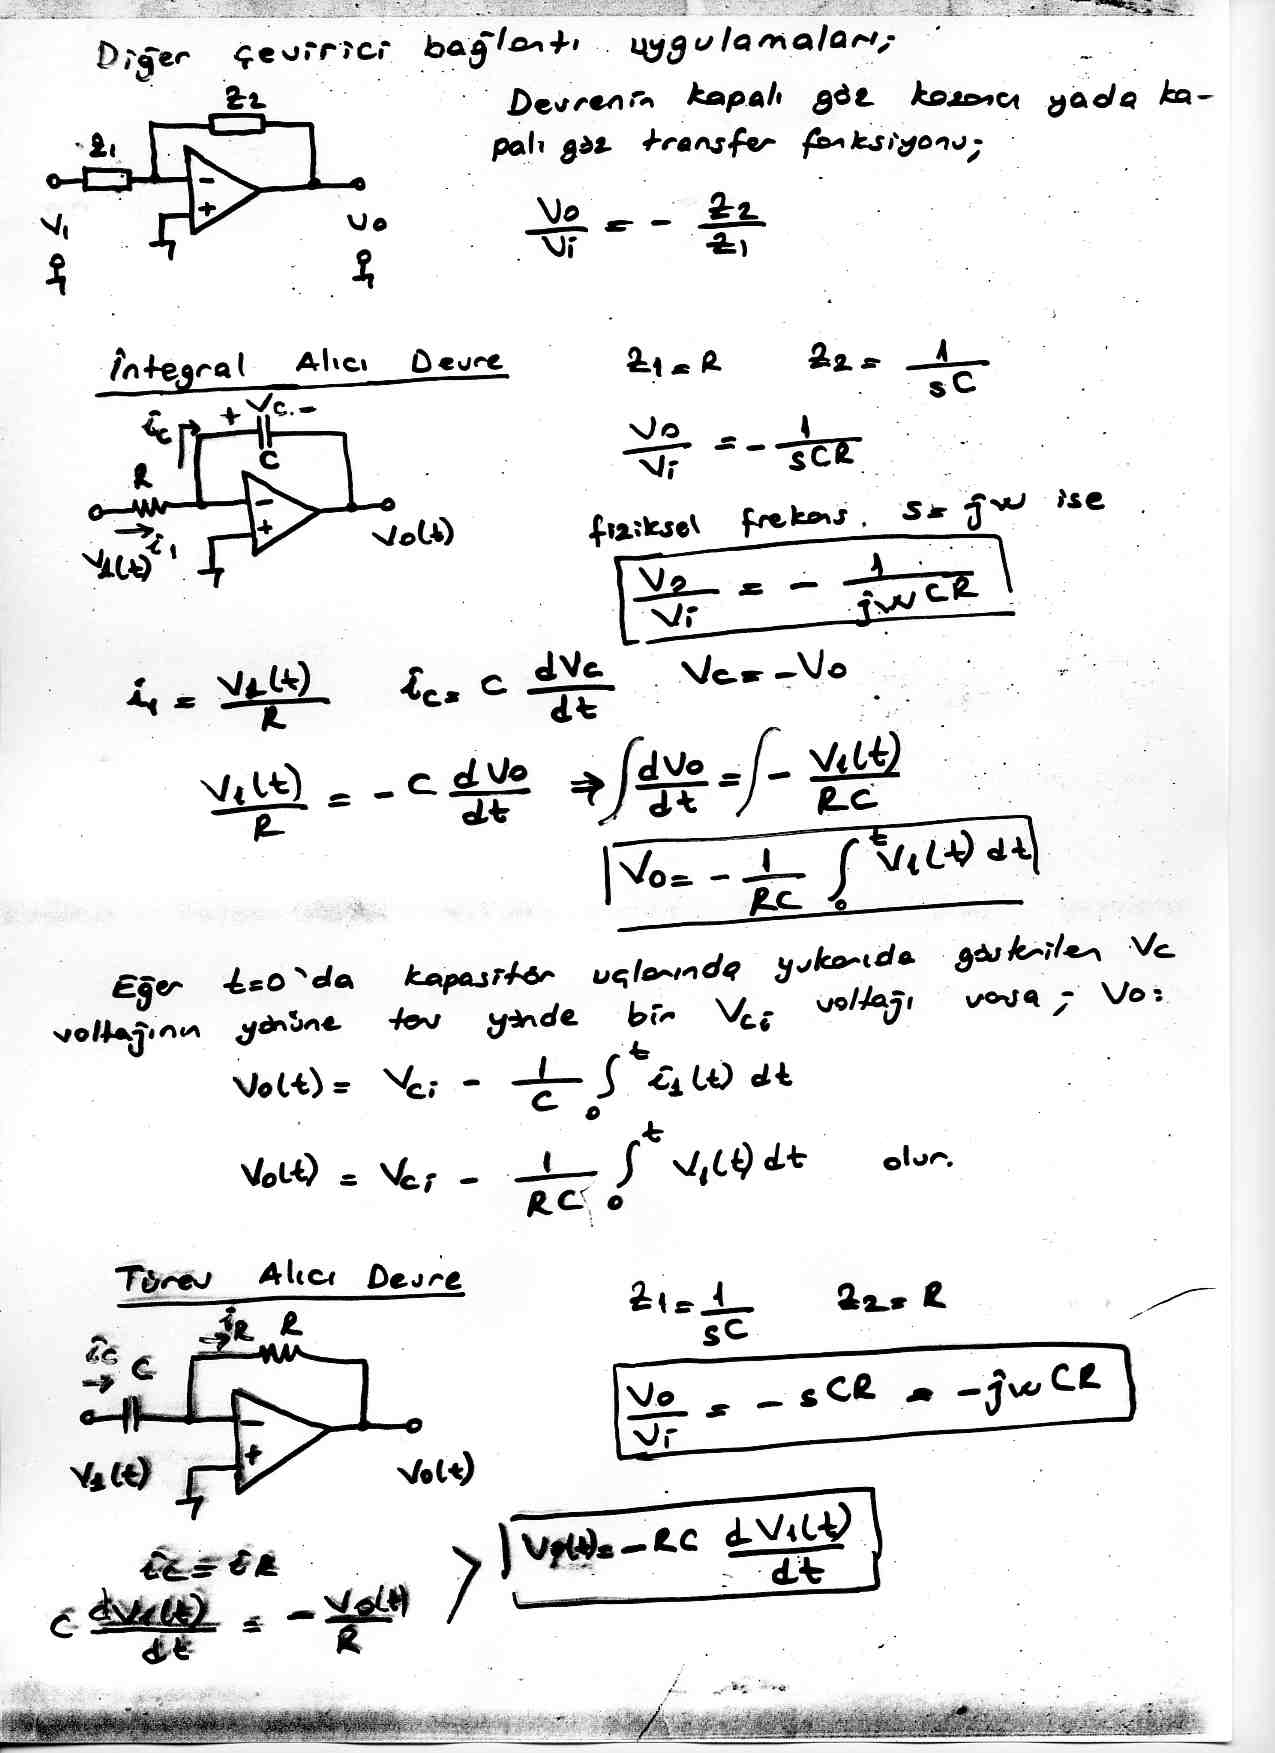 Diğer çevirici bağlantı uygulamaları;
Z2
Z1
-
+
Vi
Vo
Devrenin kapalı göz kazancı yada ka-
palı göz transfer fonksiyonu;
Vo/Vi = - Z2/Z1
İntegral Alıcı Devre
Z1 = R Z2 = 1/sC
ic + Vc -
C
R
-
+
i1
V1(t)
Vo(t)
Vo/Vi = - 1/sCR
fiziksel frekans. s = jw ise
Vo/Vi = - 1/jwCR
i1 = V1(t)/R ic = C dVc/dt Vc = -Vo
V1(t)/R = -C dVo/dt ⇒ ∫ dVo/dt = ∫ - V1(t)/RC
Vo = - 1/RC ∫₀ᵗ V1(t) dt
Eğer t=0'da kapasitör uçlarında yukarıda gösterilen Vc
voltajının yönüne ters yönde bir Vci voltajı varsa; Vo:
Vo(t) = Vci - 1/C ∫₀ᵗ i1(t) dt
Vo(t) = Vci - 1/RC ∫₀ᵗ V1(t) dt olur.
Türev Alıcı Devre
Z1 = 1/sC Z2 = R
iR R
ic C
-
+
V1(t)
Vo(t)
Vo/Vi = - sCR = -jwCR
ic = iR
C dV1(t)/dt = - Vo(t)/R
> Vo(t) = -RC dV1(t)/dt